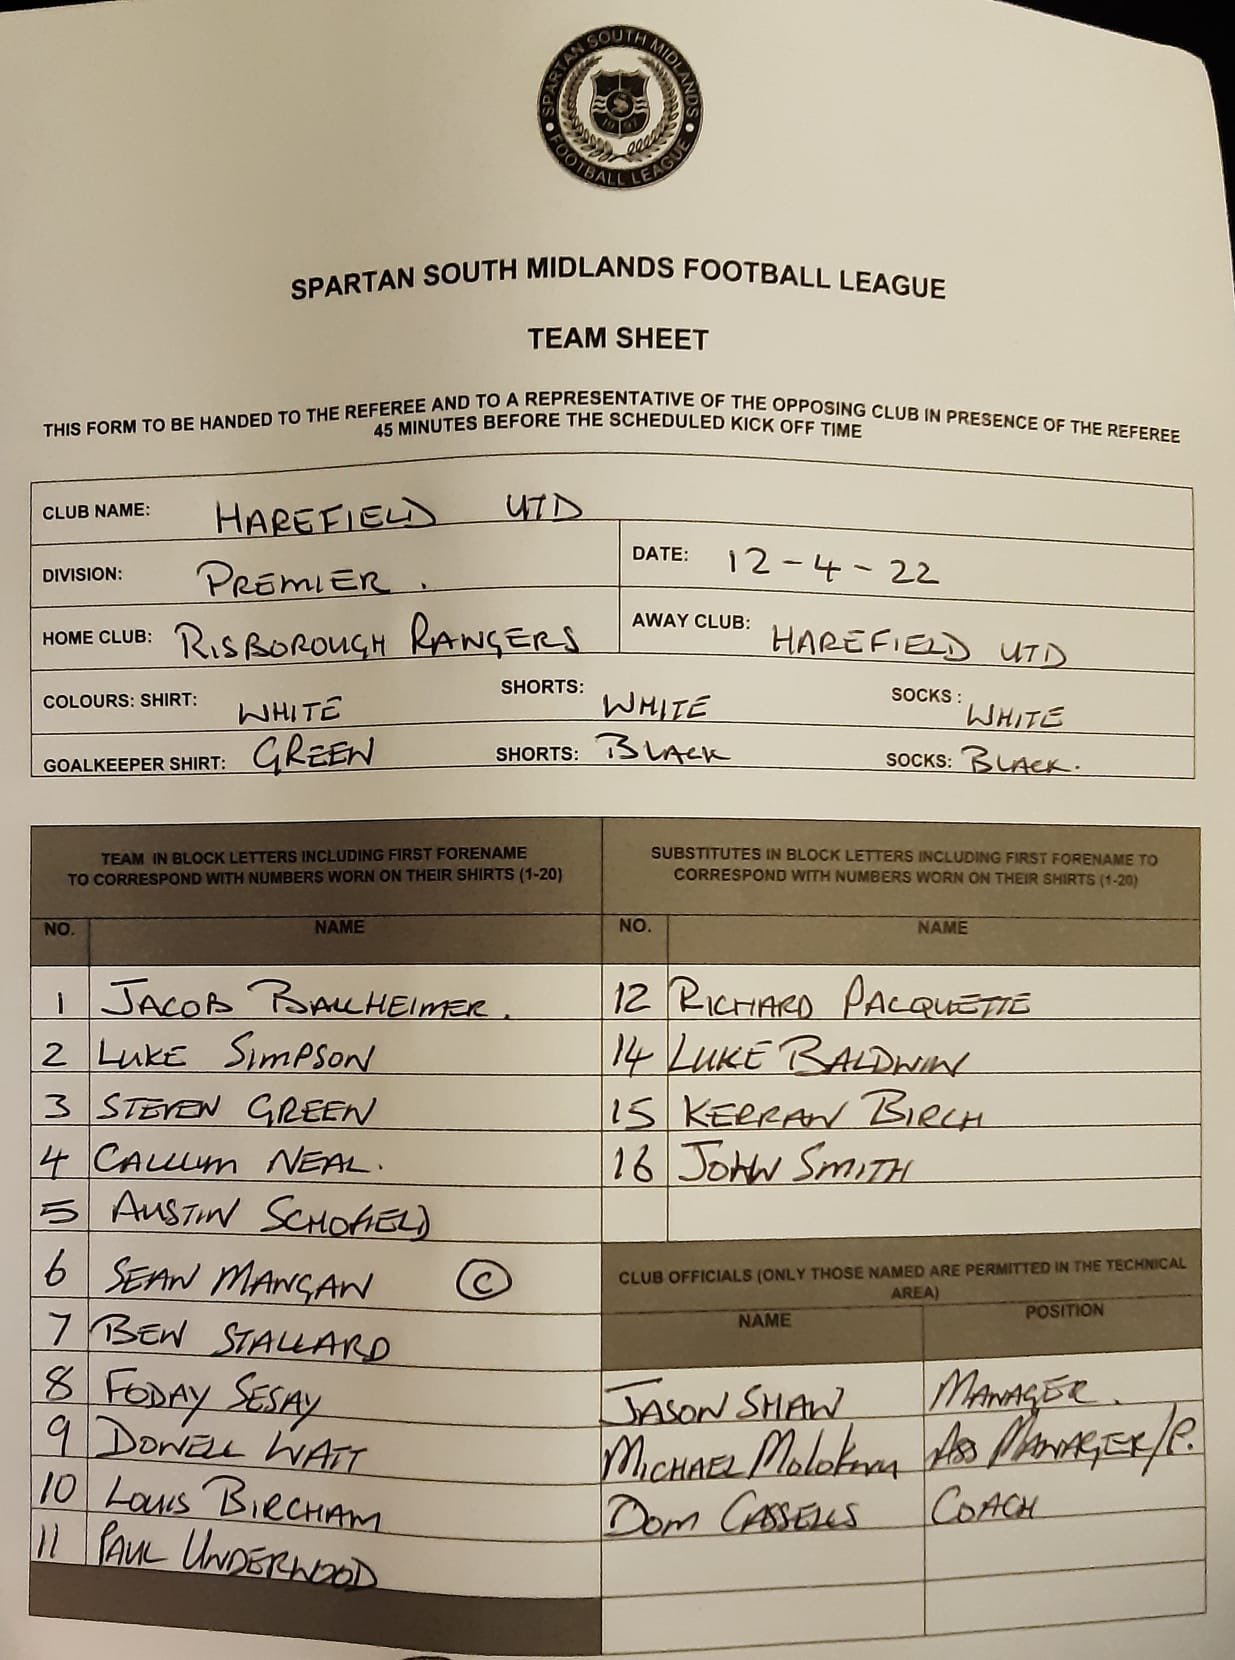 SPARTAN SOUTH MIDLANDS
FOOTBALL LEAGUE
1997
SPARTAN SOUTH MIDLANDS FOOTBALL LEAGUE
TEAM SHEET
THIS FORM TO BE HANDED TO THE REFEREE AND TO A REPRESENTATIVE OF THE OPPOSING CLUB IN PRESENCE OF THE REFEREE
45 MINUTES BEFORE THE SCHEDULED KICK OFF TIME
CLUB NAME: HAREFIELD UTD
DIVISION: PREMIER . DATE: 12-4-22
HOME CLUB: RISBOROUGH RANGERS AWAY CLUB: HAREFIELD UTD
COLOURS: SHIRT: WHITE SHORTS: WHITE SOCKS : WHITE
GOALKEEPER SHIRT: GREEN SHORTS: BLACK SOCKS: BLACK.
TEAM IN BLOCK LETTERS INCLUDING FIRST FORENAME
TO CORRESPOND WITH NUMBERS WORN ON THEIR SHIRTS (1-20)
NO. NAME
1 JACOB BALLHEIMER.
2 LUKE SIMPSON
3 STEVEN GREEN
4 CALLUM NEAL.
5 AUSTIN SCHOFIELD
6 SEAN MANGAN C
7 BEN STALLARD
8 FODAY SESAY
9 DOWELL WATT
10 LOUIS BIRCHAM
11 PAUL UNDERWOOD
SUBSTITUTES IN BLOCK LETTERS INCLUDING FIRST FORENAME TO
CORRESPOND WITH NUMBERS WORN ON THEIR SHIRTS (1-20)
NO. NAME
12 RICHARD PACQUETTE
14 LUKE BALDWIN
15 KERRAN BIRCH
16 JOHN SMITH
CLUB OFFICIALS (ONLY THOSE NAMED ARE PERMITTED IN THE TECHNICAL
AREA)
NAME POSITION
JASON SHAW MANAGER.
MICHAEL ASS MANAGER/P.
DOM CASSELLS COACH